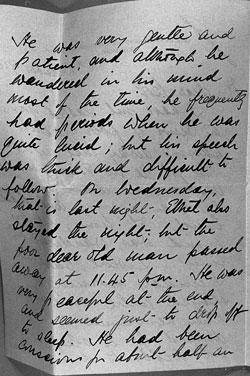 He was very gentle and
patient, and although he
wandered in his mind
most of the time, he frequently
had periods when he was
quite lucid; but his speech
was thick and difficult to
follow. On Wednesday,
that is last night, Ethel also
stayed the night, but the
poor dear old man passed
away at 11.45 p.m. He was
very peaceful at the end,
and seemed just to drop off
to sleep. He had been
conscious for about half an